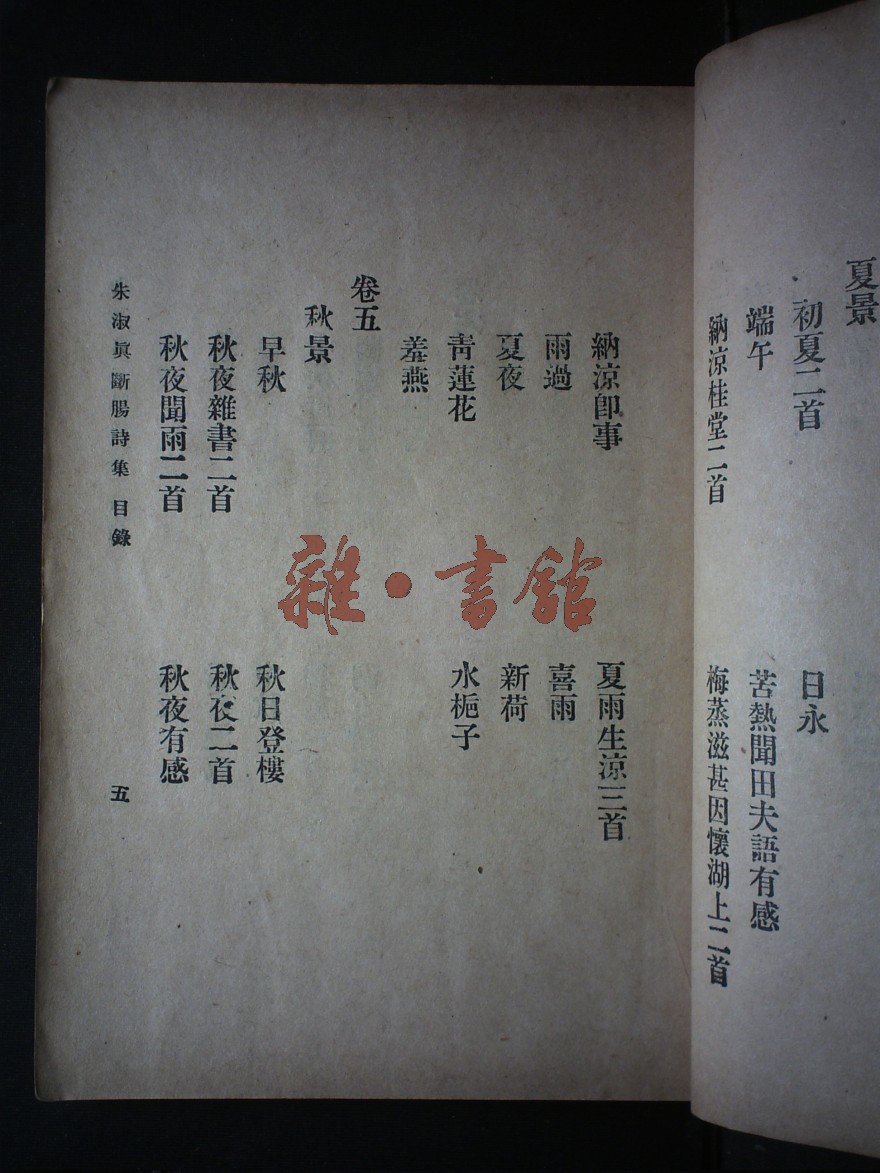 夏景
初夏二首
日永
端午
苦熱聞田夫語有感
納涼桂堂二首
梅蒸滋甚因懷湖上二首
納涼卽事
夏雨生涼三首
雨過
喜雨
夏夜
新荷
靑蓮花
水梔子
羞燕
卷五
秋景
早秋
秋日登樓
秋夜雜書二首
秋夜二首
秋夜聞雨二首
秋夜有感
朱淑眞斷腸詩集 目錄
五
雜·書館